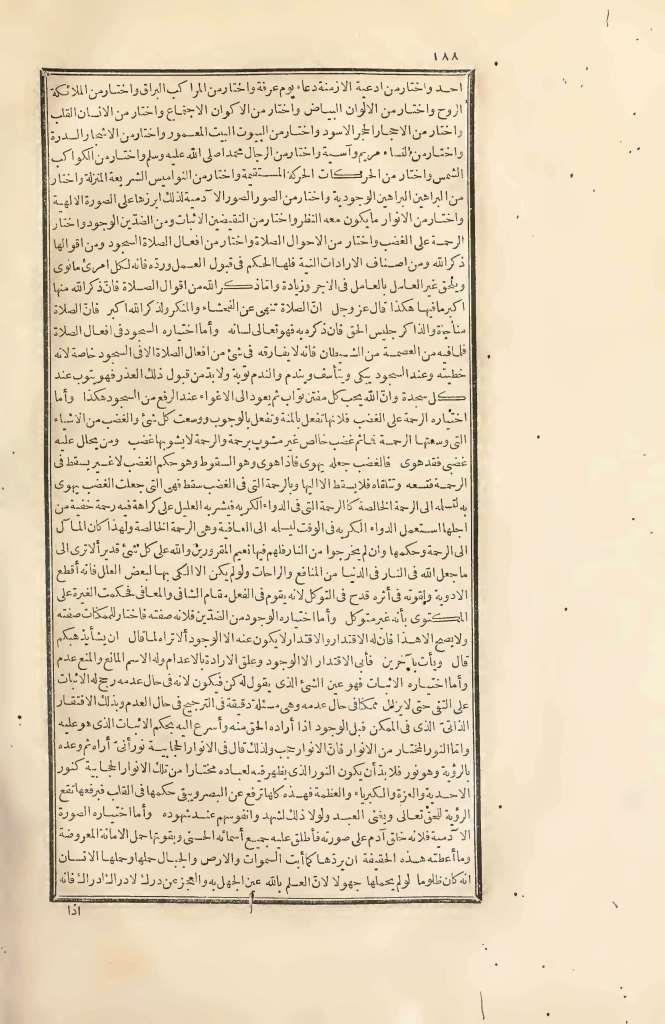 ١٨٨
احد واختار من ادعية الازمنة دعاء يوم عرفة واختار من المراكب البراق واختار من الملائكة
الروح واختار من الالوان البياض واختار من الاكوان الاجتماع واختار من الانسان القلب
واختار من الاحجار الحجر الاسود واختار من البيوت البيت المعمور واختار من الاشجار السدرة
واختار من النساء مريم وآسية واختار من الرجال محمدا صلى الله عليه وسلم واختار من الكواكب
الشمس واختار من الحركات الحركة المستقيمة واختار من النواميس الشريعة المنزلة واختار
من البراهين البراهين الوجودية واختار من الصور الصور الآدمية لذلك ابرزها على الصورة الالهية
واختار من الانوار ما يكون معه النظر واختار من النقيضين الاثبات ومن الضدين الوجود واختار
الرحمة على الغضب واختار من الاحوال الصلاة واختار من افعال الصلاة السجود ومن اقوالها
ذكر الله ومن اصناف الارادات النية فلها الحكم في قبول العمل ورده فانه لكل امرئ ما نوى
ويلحق غير العامل بالعامل في الاجر وزيادة وانما ذكر الله من اقوال الصلاة فان ذكر الله منها
اكبر ما فيها هكذا قال عز وجل ان الصلاة تنهى عن الفحشاء والمنكر ولذكر الله اكبر فان الصلاة
مناجزة والذاكر جليس الحق فان ذكره به فهو تعالى لسانه وأما اختياره السجود في افعال الصلاة
فلما فيه من العصمة من الشيطان فانه لا يفارقه في شئ من افعال الصلاة الا في السجود خاصة لانه
خطيئته وعند السجود يبكى ويتأسف ويندم والندم توبة ولا بد من قبول ذلك العذر فهو يتوب عند
كل سجدة وان الله يحب كل مفتن تواب ثم يعود الى الاغواء عند الرفع من السجود هكذا وأما
اختياره الرحمة على الغضب فلانها تفعل بالمنة وتفعل بالوجوب ووسعت كل شئ والغضب من الاشياء
التى وسعتها الرحمة فما ثم غضب خالص غير مشوب برحمة والرحمة لا يشوبها غضب ومن يحلل عليه
غضبى فقد هوى فالغضب جعله يهوى فاذا هوى وهو السقوط وهو حكم الغضب لا غير يسقط في
الرحمة فتسعه وتتلقاه فلا يسقط الا اليها وبالرحمة التى في الغضب سقط فهى التى جعلت الغضب يهوى
به لتسلمه الى الرحمة الخالصة كالرحمة التى في الدواء الكريه فيشربه العليل على كراهة فيه رحمة خفية من
اجلها استعمل الدواء الكريه في الوقت ليسلمه الى العافية وهى الرحمة الخالصة ولهذا كان المآل
الى الرحمة وحكمها وان لم يخرجوا من النار فلهم فيها نعيم المقرورين والله على كل شئ قدير ألا ترى الى
ما جعل الله في النار في الدنيا من المنافع والراحات ولو لم يكن الا الكى بها لبعض العلل فانه أقطع
الادوية ولقوته في أثره قدح في التوكل لانه يقوم في الفعل مقام الشافى والمعافى فحكمت الغيرة على
المكتوى بأنه غير متوكل وأما اختياره الوجود من الضدين فلانه صفته فاختار للممكنات صفته
ولا يصح الا هذا فان له الاقتدار والاقتدار لا يكون عنه الا الوجود ألا تراه لما قال ان يشأ يذهبكم
قال ويأت بآخرين فأبى الاقتدار الا الوجود وعلق الارادة بالاعدام وله الاسم المانع والمنع عدم
وأما اختياره الاثبات فهو عين الشئ الذى يقول له كن فيكون لانه في حال عدمه رجح له الاثبات
على النفى حتى لا يزال ممكنا في حال عدمه وهى مسئلة دقيقة في الترجيح في حال العدم وبذلك الافتقار
الذاتى الذى في الممكن قبل الوجود اذا أراده الحق منه وأسرع اليه بحكم الاثبات الذى هو عليه
وأما النور المختار من الانوار فان الانوار حجب ولذلك قال في الانوار الحجابية نورأنى أراه ثم وعده
بالرؤية وهو نور فلا بد أن يكون النور الذى يظهر فيه لعباده مختارا من تلك الانوار الحجابية كنور
الاحدية والعزة والكبرياء والعظمة فهذه كلها ترفع عن البصر ويبقى حكمها في القلب فبرفعها تقع
الرؤية للحق تعالى وبقى العبد ولولا ذلك لشهد وانفوسهم عند شهوده وأما اختياره الصورة
الآدمية فلانه خلق آدم على صورته فأطلق عليه جميع أسمائه الحسنى وبقوتها حمل الامانة المعروضة
وما أعطته هذه الحقيقة ان يردها كما أبت السموات والارض والجبال حملها وحملها الانسان
انه كان ظلوما لو لم يحملها جهولا لان العلم بالله عين الجهل به والعجز عن درك الادراك ادراك فانه
اذا